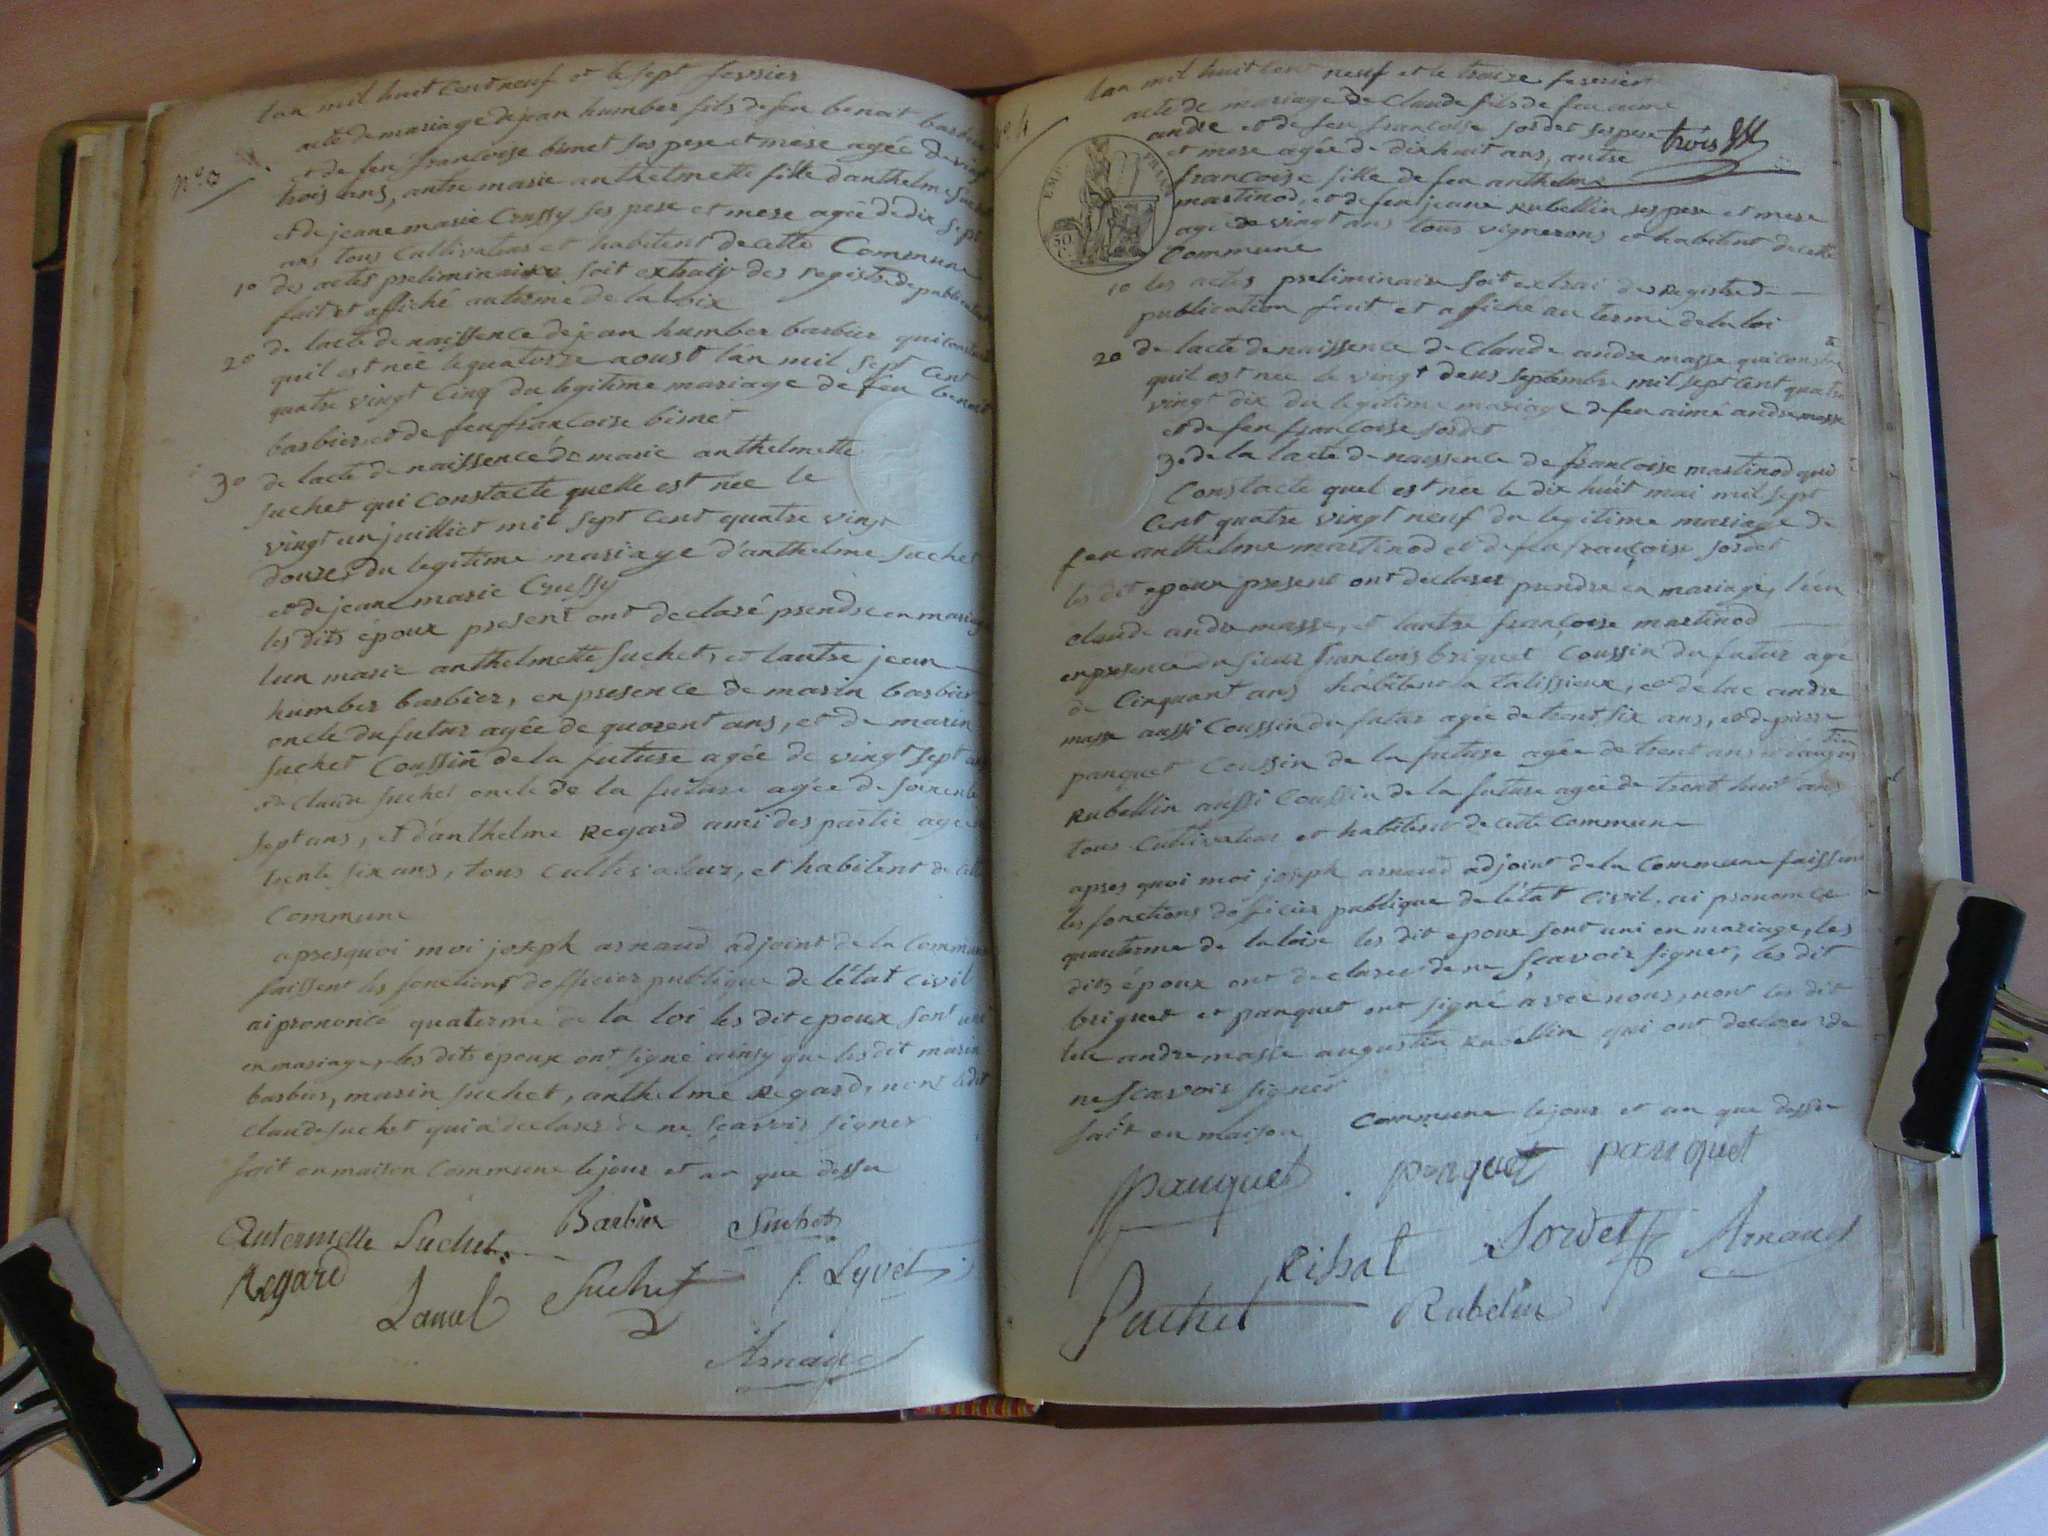 lan mil huit cent neuf et le sept fevrier
acte de mariage de jean humber fils de feu benoit barbier
n° 3
et de feu francoise bimet ses pere et mere agée de vingt
trois ans, antre marie anthelmette fille d'anthelme suchet
et de jeane marie Crussy ses pere et mere agée de dix sept
ans tous Cultivateur et habitent de cette Commune
1° des actes preliminaire soit extrait des registre de publication
fait et affiché au terme de la loix
2° de lacte de naissence de jean humber barbier qui constate
quil est née le quatorze aoust l'an mil sept cent
quatre vingt cinq du legitime mariage de feu benoit
barbier et de feu francoise bimet
3° de lacte de naissence de marie anthelmette
suchet qui constacte quelle est née le
vingt un juilliet mil sept cent quatre vingt
douze, du legitime mariage d'anthelme suchet
et de jeane marie Crussy
les dits époux present ont declaré prendre en mariage
lun marie anthelmette suchet, et lautre jean
humber barbier, en presence de marin barbier
oncle du futur agée de quarent ans, et de marin
suchet Coussin de la future agée de vingt sept ans
et de Claude suchet oncle de la future agée de soixente
sept ans, et d'anthelme Regard ami des partie agée
trente six ans, tous cultivateur, et habitent de cette
Commune
apres quoi moi joseph arnaud adjoint de la Commune
faissent les fonctions dofficier publique de l'état Civil
ai prononcé quaterme de la loi les dit epoux sont uni
en mariage, les dits époux ont signé ainsy que les dit marin
barbier, marin suchet, anthelme Regard, nont ledit
claude suchet qui a declarer de ne sçavoir signer
fait en maison Commune le jour et an que dessu
Antermelle Suchet Barbier Suchet
Regard Suchet Lyvet
Arnaud
lan mil huit cent neuf et le treize fevrier
n° 4
acte de mariage de Claude fils de feu aimé
andre et de feu francoise sordet ses pere trois
et mere agée de dix huit ans, antre
francoise fille de feu anthelme
martinod, et de feu jeane Rubellin ses pere et mere
age de vingt ans tous vignerons et habitent de cette
Commune
EMP FRAN
50 C
1° les actes preliminaire soit extrai des Registre de
publication fait et affiché au terme de la loi
2° de lacte de naissence de Claude andre masse qui constate
quil est née le vingt deux septembre mil sept cent quatre
vingt dix du legitime mariage de feu aimé andre masse
et de feu francoise sordet
3° de la lacte de naissence de francoise martinod qui
Constacte quel est née le dix huit mai mil sept
Cent quatre vingt neuf du legitime mariage de
feu anthelme martinod et de feu françoise sordet
les dit epoux present ont declarer prendre en mariage, l'un
claude andre masse, et lautre françoise martinod
en presence du sieur francois briquet Coussin du futur age
de Cinquant ans habitent a talissieux, et de luc andre
masse aussi Coussin du futur agée de trent six ans, et de pierre
panquet Coussin de la future agée de trent ans et d'augustin
Rubellin aussi Coussin de la future agée de trent huit ans
tous Cultivateur et habitent de cette Commune
apres quoi moi joseph arnaud adjoint de la Commune faissent
les fonctions d'oficier publique de l'état Civil, ai prononcée
quauterme de la loix les dit epoux sont uni en mariage, les
dits époux ont declarer de ne sçavoir signer, les dit
briquet et panquet ont signé avec nous, nont les dit
luc andre masse augustin Rubellin qui ont declarer de
ne scavoir signer
fait en maison Commune le jour et an que dessu
panquet panquet panquet
Ribat Sordet Arnaud
Suchet Rubelin